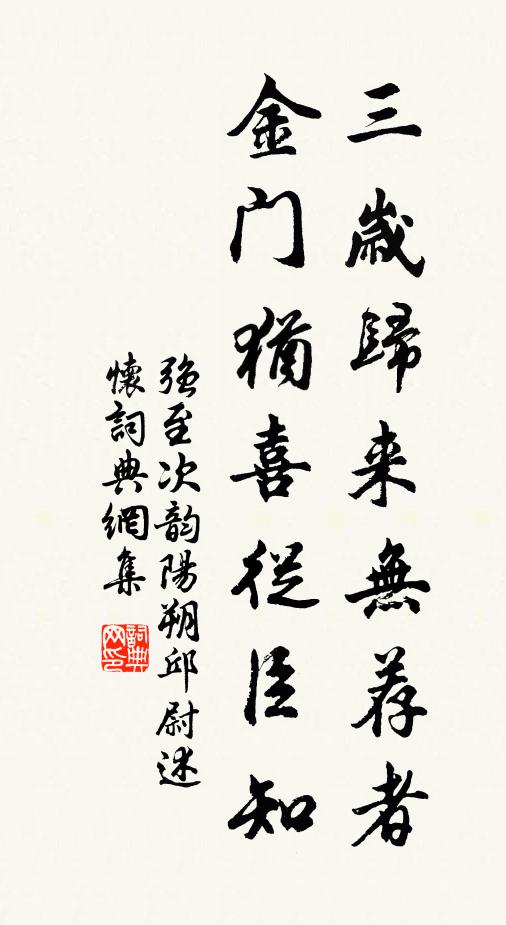 三歲歸来無荐者
金门猶喜從臣知
強至次韵陽朔邱尉述
懷詞典網集
詞典
网印